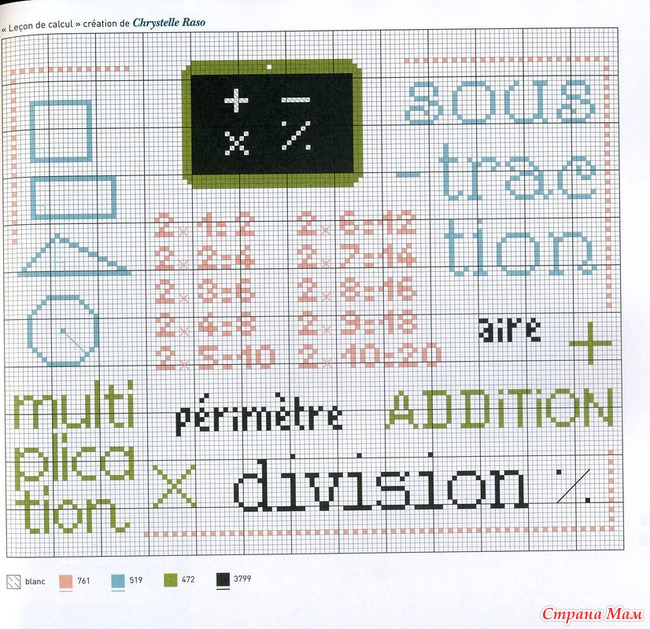 « Leçon de calcul » création de Chrystelle Raso
+ −
× ٪
sous
- trac
tion
2 × 1 = 2
2 × 2 = 4
2 × 3 = 6
2 × 4 = 8
2 × 5 = 10
2 × 6 = 12
2 × 7 = 14
2 × 8 = 16
2 × 9 = 18
2 × 10 = 20
aire +
multi
plica
tion
×
périmètre
ADDiTiON
division ٪
blanc 761 519 472 3799
Страна Мам